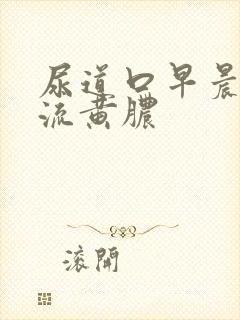 尿道口早晨
流黄膿
滾開